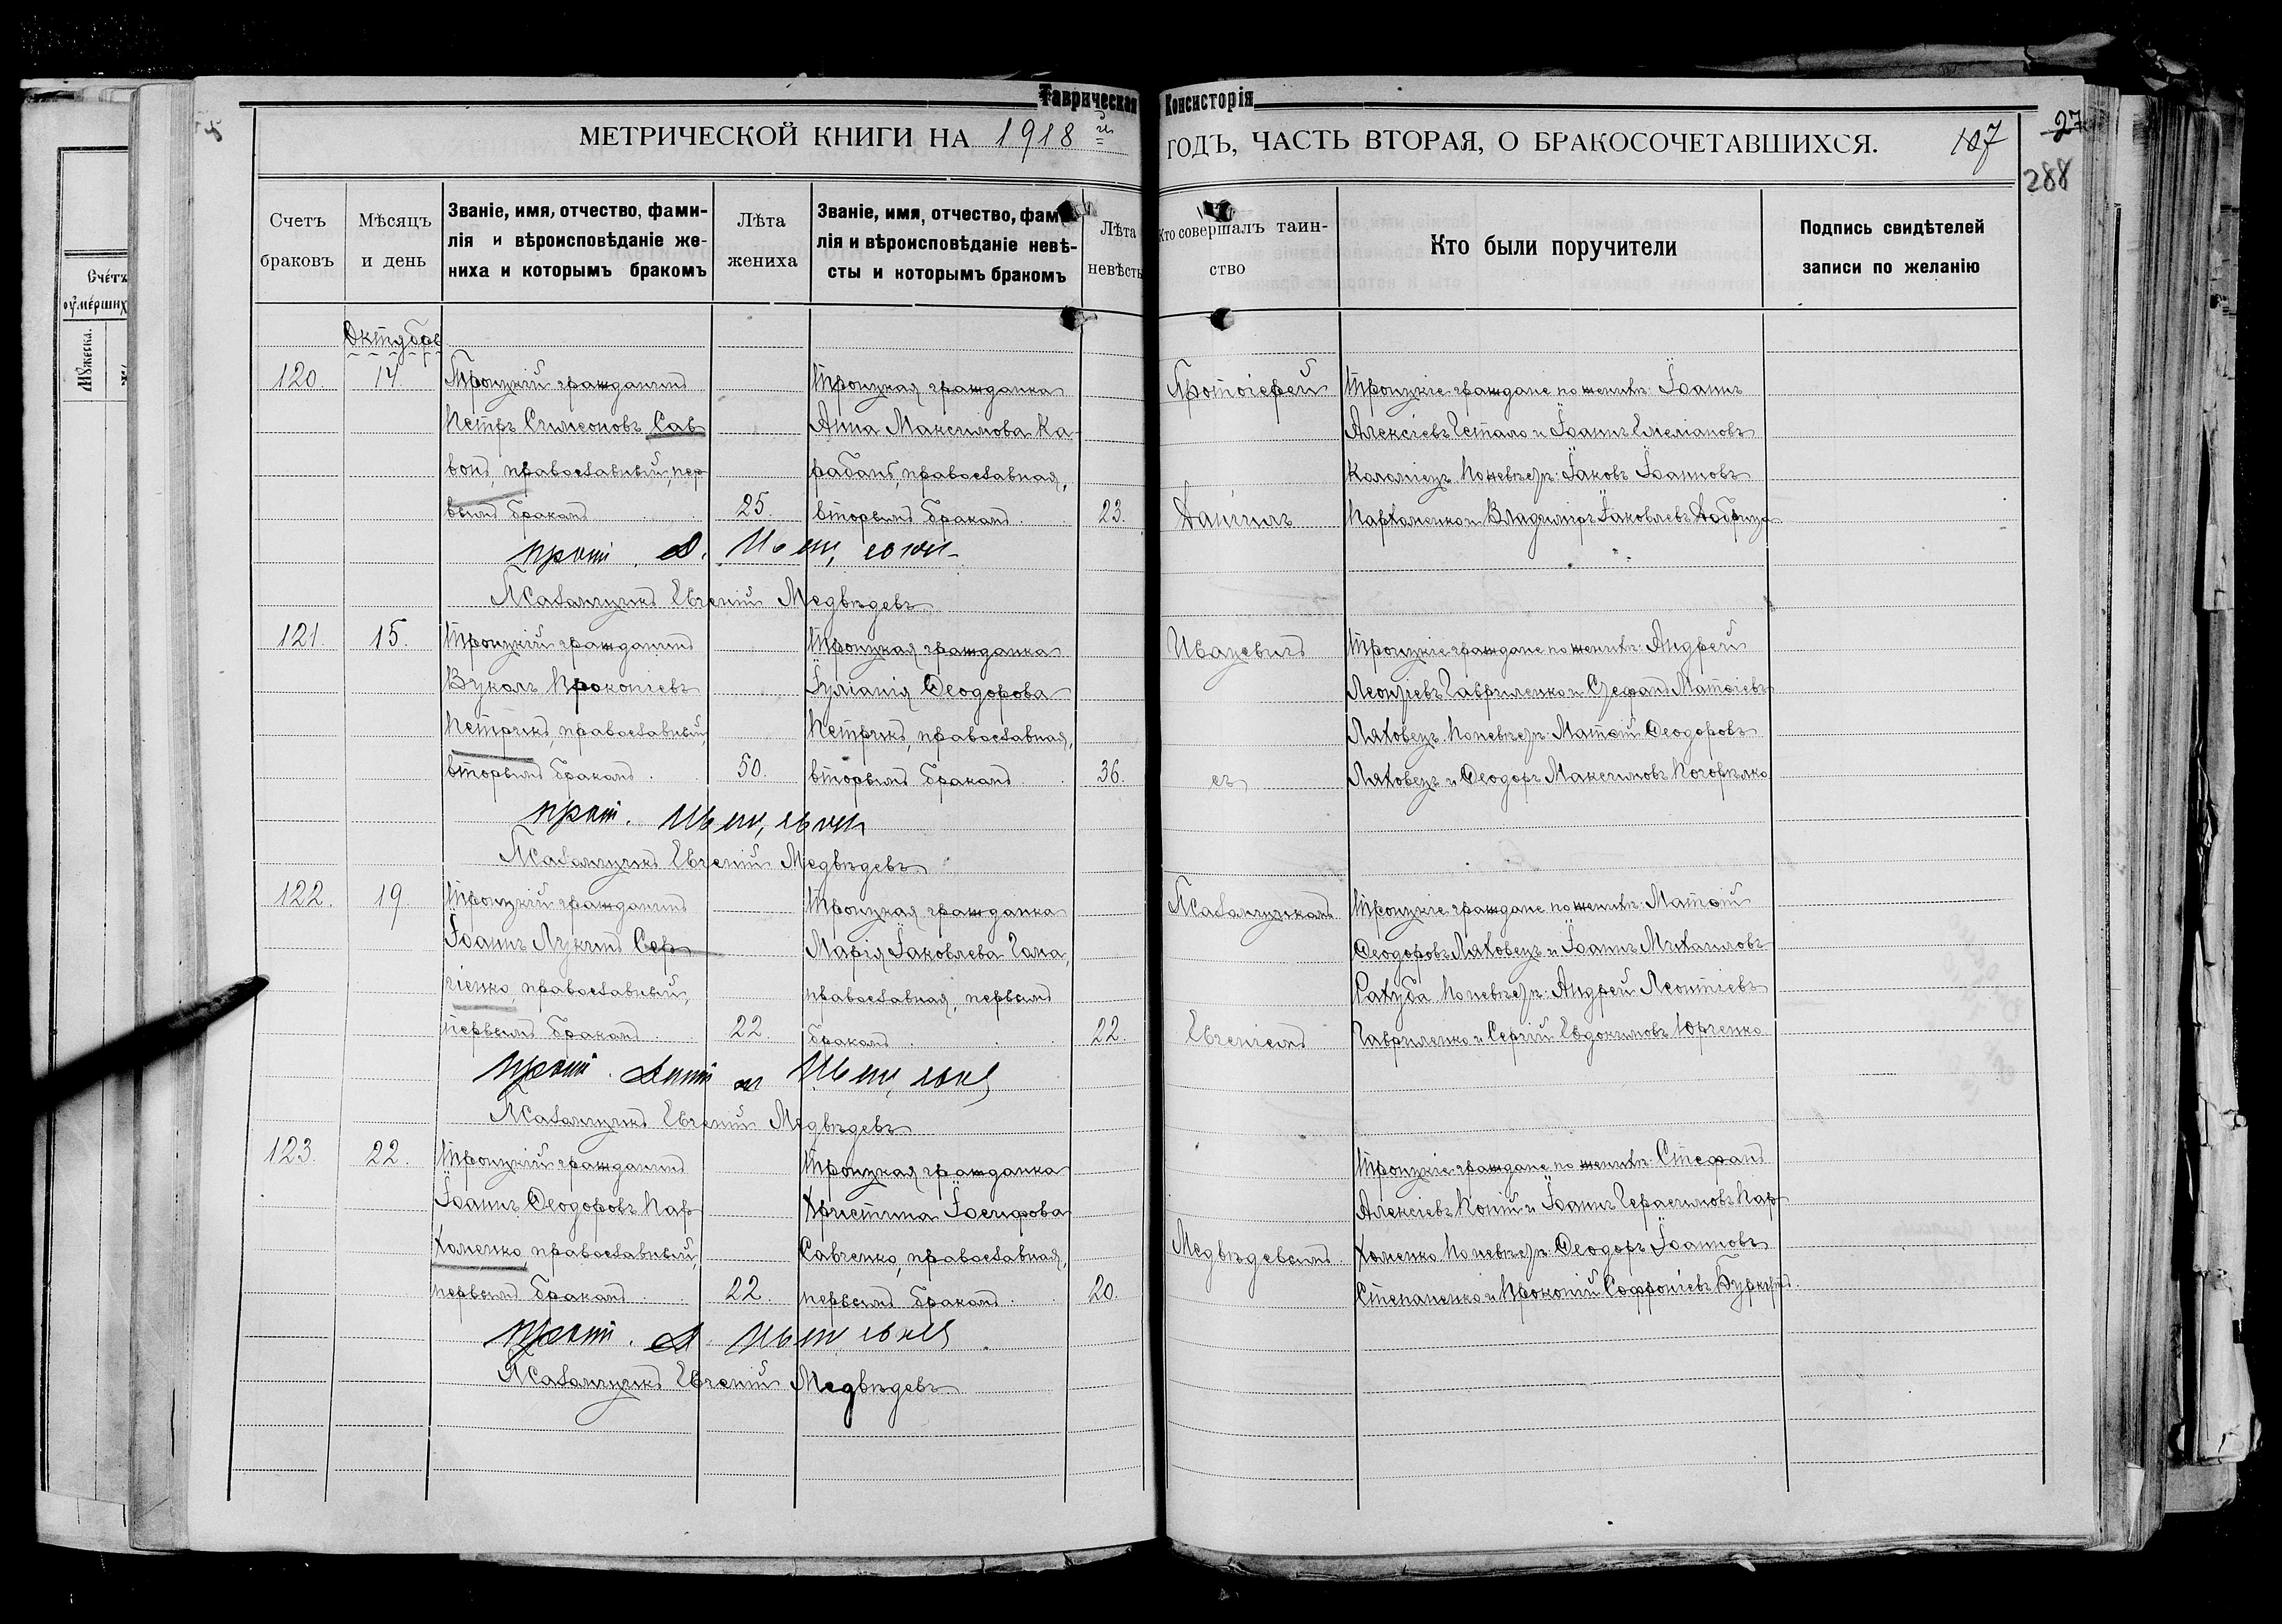 Таврическая Консисторія
МЕТРИЧЕСКОЙ КНИГИ НА 1918 й
ГОДЪ, ЧАСТЬ ВТОРАЯ, О БРАКОСОЧЕТАВШИХСЯ. 107
27
288
Счетъ
браковъ
Мѣсяцъ
и день
Званіе, имя, отчество, фами-
лія и вѣроисповѣданіе же-
ниха и которымъ бракомъ
Лѣта
жениха
Званіе, имя, отчество, фам
лія и вѣроисповѣданіе невѣ-
сты и которымъ бракомъ
Лѣта
невѣсты
Кто совершалъ таин-
ство
Кто были поручители
Подпись свидѣтелей
записи по желанію
Счетъ
Октября
120. 14.
Троицкій гражданинъ
Петръ Симеоновъ Сав
вонъ, православный, пер
вымъ бракомъ
25.
Троицкая гражданка
Анна Максимова Ка
рабанъ, православная,
вторымъ бракомъ.
23.
Протоіерей
Даніилъ
Троицкіе граждане по женихѣ: Іоаннъ
Алексіевъ Гетало и Іоаннъ Емеліановъ
Коломіецъ. По невѣстѣ: Іаковъ Іоанновъ
Пархоменко и Владиміръ Іаковлевъ
прот. Д.
Псаломщикъ Евгеній Медвѣдевъ
121. 15.
Троицкій гражданинъ
Вуколъ Прокопіевъ
Петрикъ, православный,
вторымъ бракомъ.
50.
Троицкая гражданка
Іуліанія Ѳеодорова
Петрикъ, православная,
вторымъ бракомъ.
36.
Ивацевичъ
съ
Троицкіе граждане по женихѣ: Андрей
Леонтіевъ Гавриленко и Стефанъ Матѳіевъ
Ляховецъ. По невѣстѣ: Матѳій Ѳеодоровъ
Ляховецъ и Ѳеодоръ Максимовъ Погорѣлко
прот.
Псаломщикъ Евгеній Медвѣдевъ
122. 19.
Троицкій гражданинъ
Іоаннъ Лукинъ Сер
гіенко, православный,
первымъ бракомъ.
22
Троицкая гражданка
Марія Іаковлева Гома,
православная, первымъ
бракомъ.
22.
Псаломщикомъ
Евгеніемъ
Троицкіе граждане по женихѣ: Матѳій
Ѳеодоровъ Ляховецъ и Іоаннъ Михаиловъ
Рахуба. По невѣстѣ: Андрей Леонтіевъ
Гавриленко и Сергій Евдокимовъ Юрченко
прот.
Псаломщикъ Евгеній Медвѣдевъ
123. 22.
Троицкій гражданинъ
Іоаннъ Ѳеодоровъ Пар
хоменко, православный,
первымъ бракомъ.
22.
Троицкая гражданка
Христина Іосифова
Савченко, православная,
первымъ бракомъ.
20.
Медвѣдевымъ.
Троицкіе граждане по женихѣ: Стефанъ
Алексіевъ Копій и Іоаннъ Герасимовъ Пар
хоменко. По невѣстѣ: Ѳеодоръ Іоанновъ
Степаненко и Прокопій Софроніевъ
прот. Д.
Псаломщикъ Евгеній Медвѣдевъ